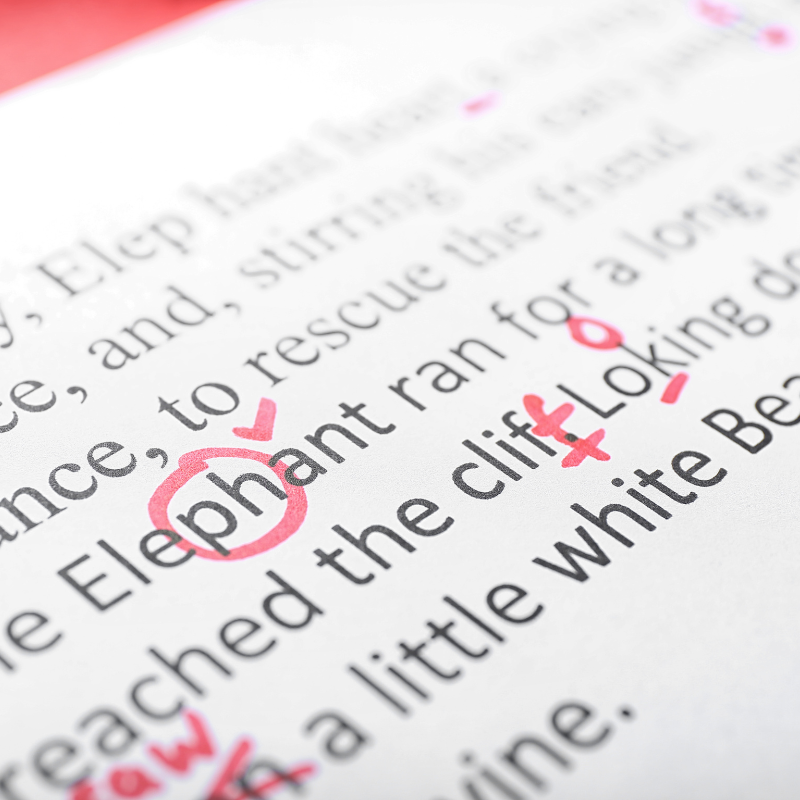 y, Elep hant heart
ce, and, stirring his ears
ance, to rescue the friend.
he Elephant ran for a long
o f
reached the clif. Loking do
a little white Bea
raw
vine.